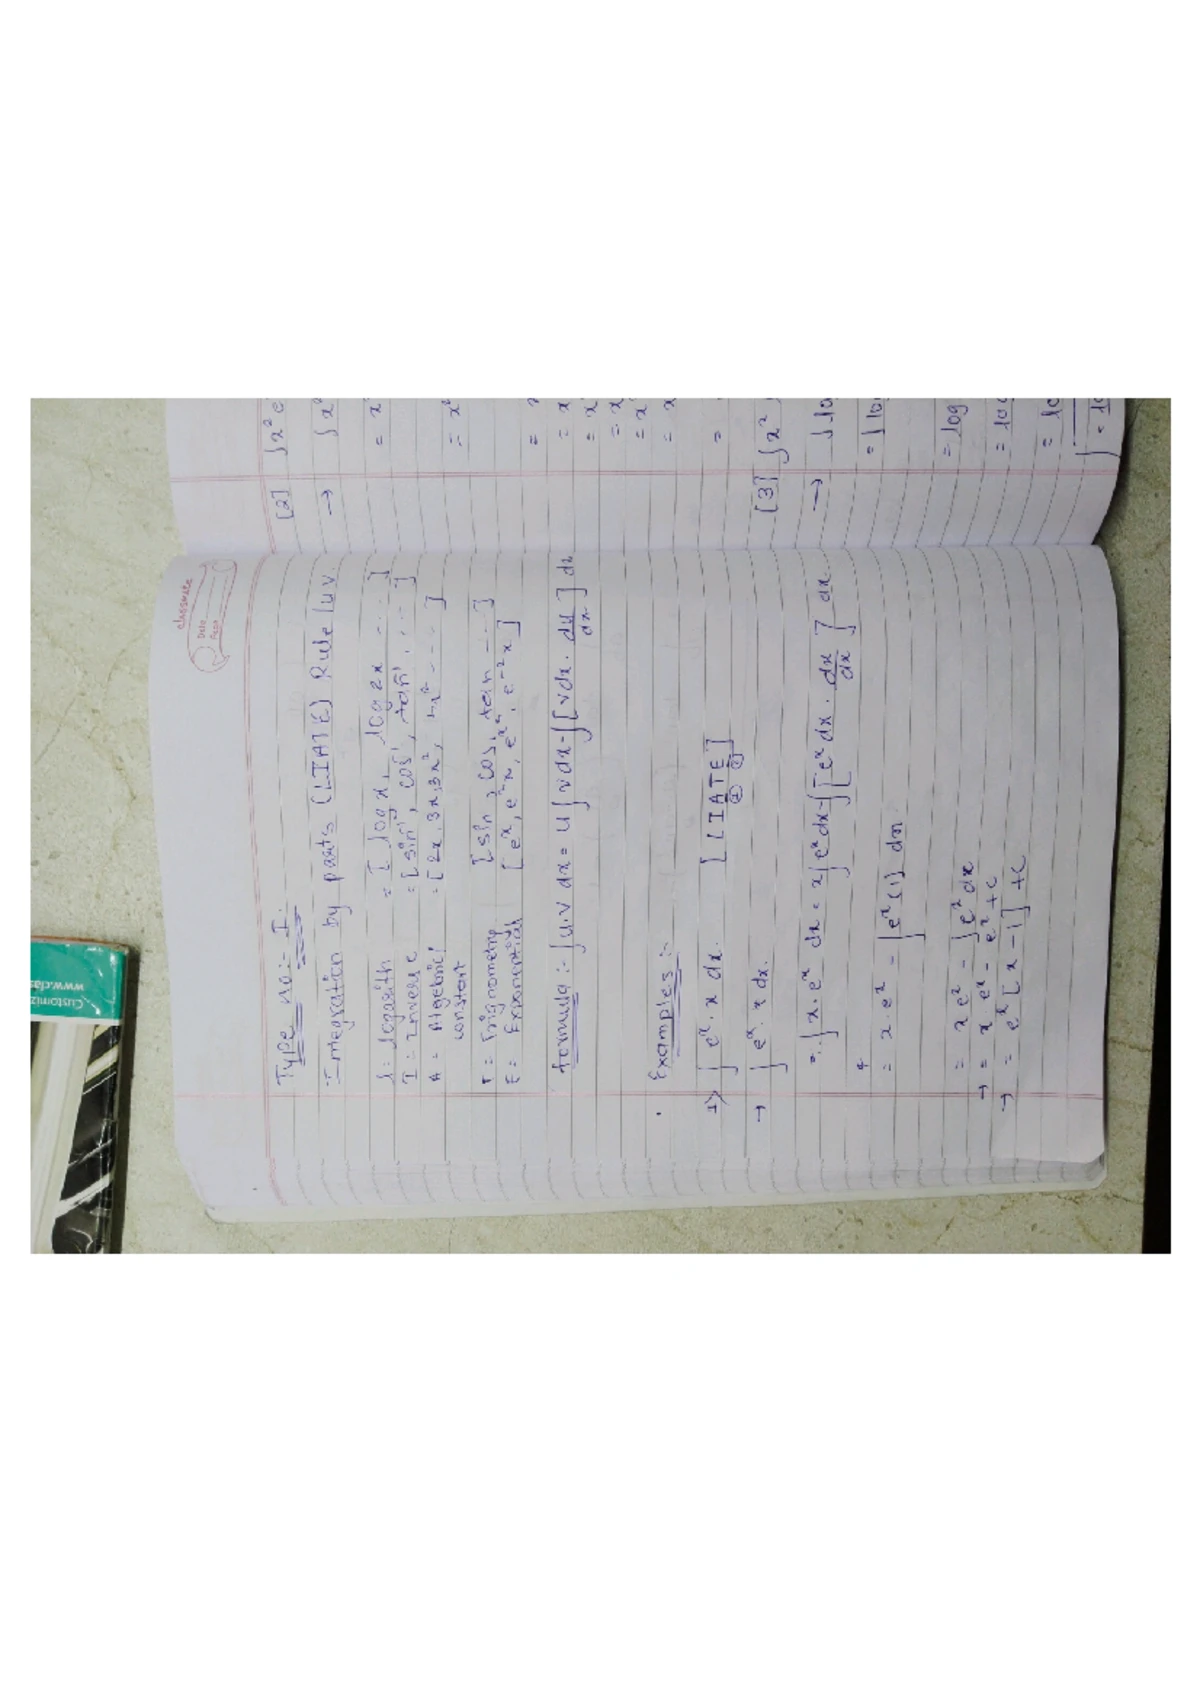 classmate
Date
Page
Type no:- I.
Integration by parts (LIATE) Rule (u.v.
L = logarith = [ log x, log 2x ---- ]
I = Inverse = [ sin⁻¹, cos⁻¹, tan⁻¹, --- ]
A = Algebric/ = [ 2x, 3x, 3x², ---- ]
constant
T = Trignometry [ sin, cos, tan --- ]
E = Exponential [ eˣ, e⁻ˣ, , e⁻²x ]
formula :- ∫u.v dx = u∫vdx-∫[vdx. du/dx] dx
Examples :-
1> ∫ eˣ. x dx. [ LIATE ]
→ ∫ eˣ. x dx.
∴ ∫ x. eˣ dx = x∫eˣdx-∫[eˣdx. dx/dx] dx
= x. eˣ - ∫eˣ(1) dx
= x eˣ - ∫eˣ dx
→ = x eˣ - eˣ + c
→ = eˣ [x - 1] + c
[2] ∫x² e
→ ∫x²
= x²
= x²
=
= x
= x
= x
= x
= x
=
[3] ∫x²
→ ∫lo
= ∫log
= log
= log
= lo
= lo
Customiz
www.clas